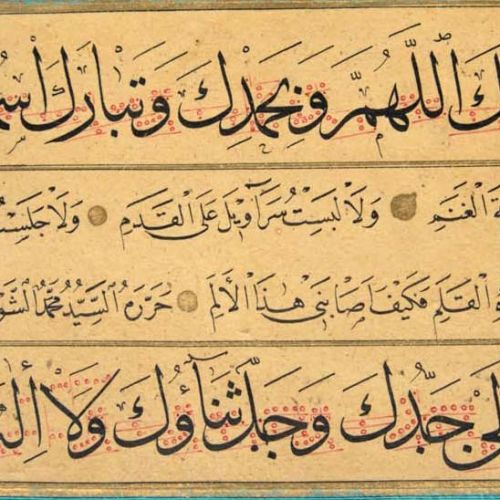 ك اللَّهُمَّ وَبِحَمْدِكَ وَتَبَارَكَ اسْمُ
الْغَنَمِ وَلَا لَبِسْتُ سَرَاوِيلَ عَلَى الْقَدَمِ وَلَا جَلَسْتُ
الْقَلَمِ فَكَيْفَ أَصَابَنِي هٰذَا الْأَلَمِ حَرَّرَهُ السَّيِّدُ مُحَمَّدُ الشَّو
جَدُّكَ وَجَلَّ ثَنَاؤُكَ وَلَا إِلٰهَ